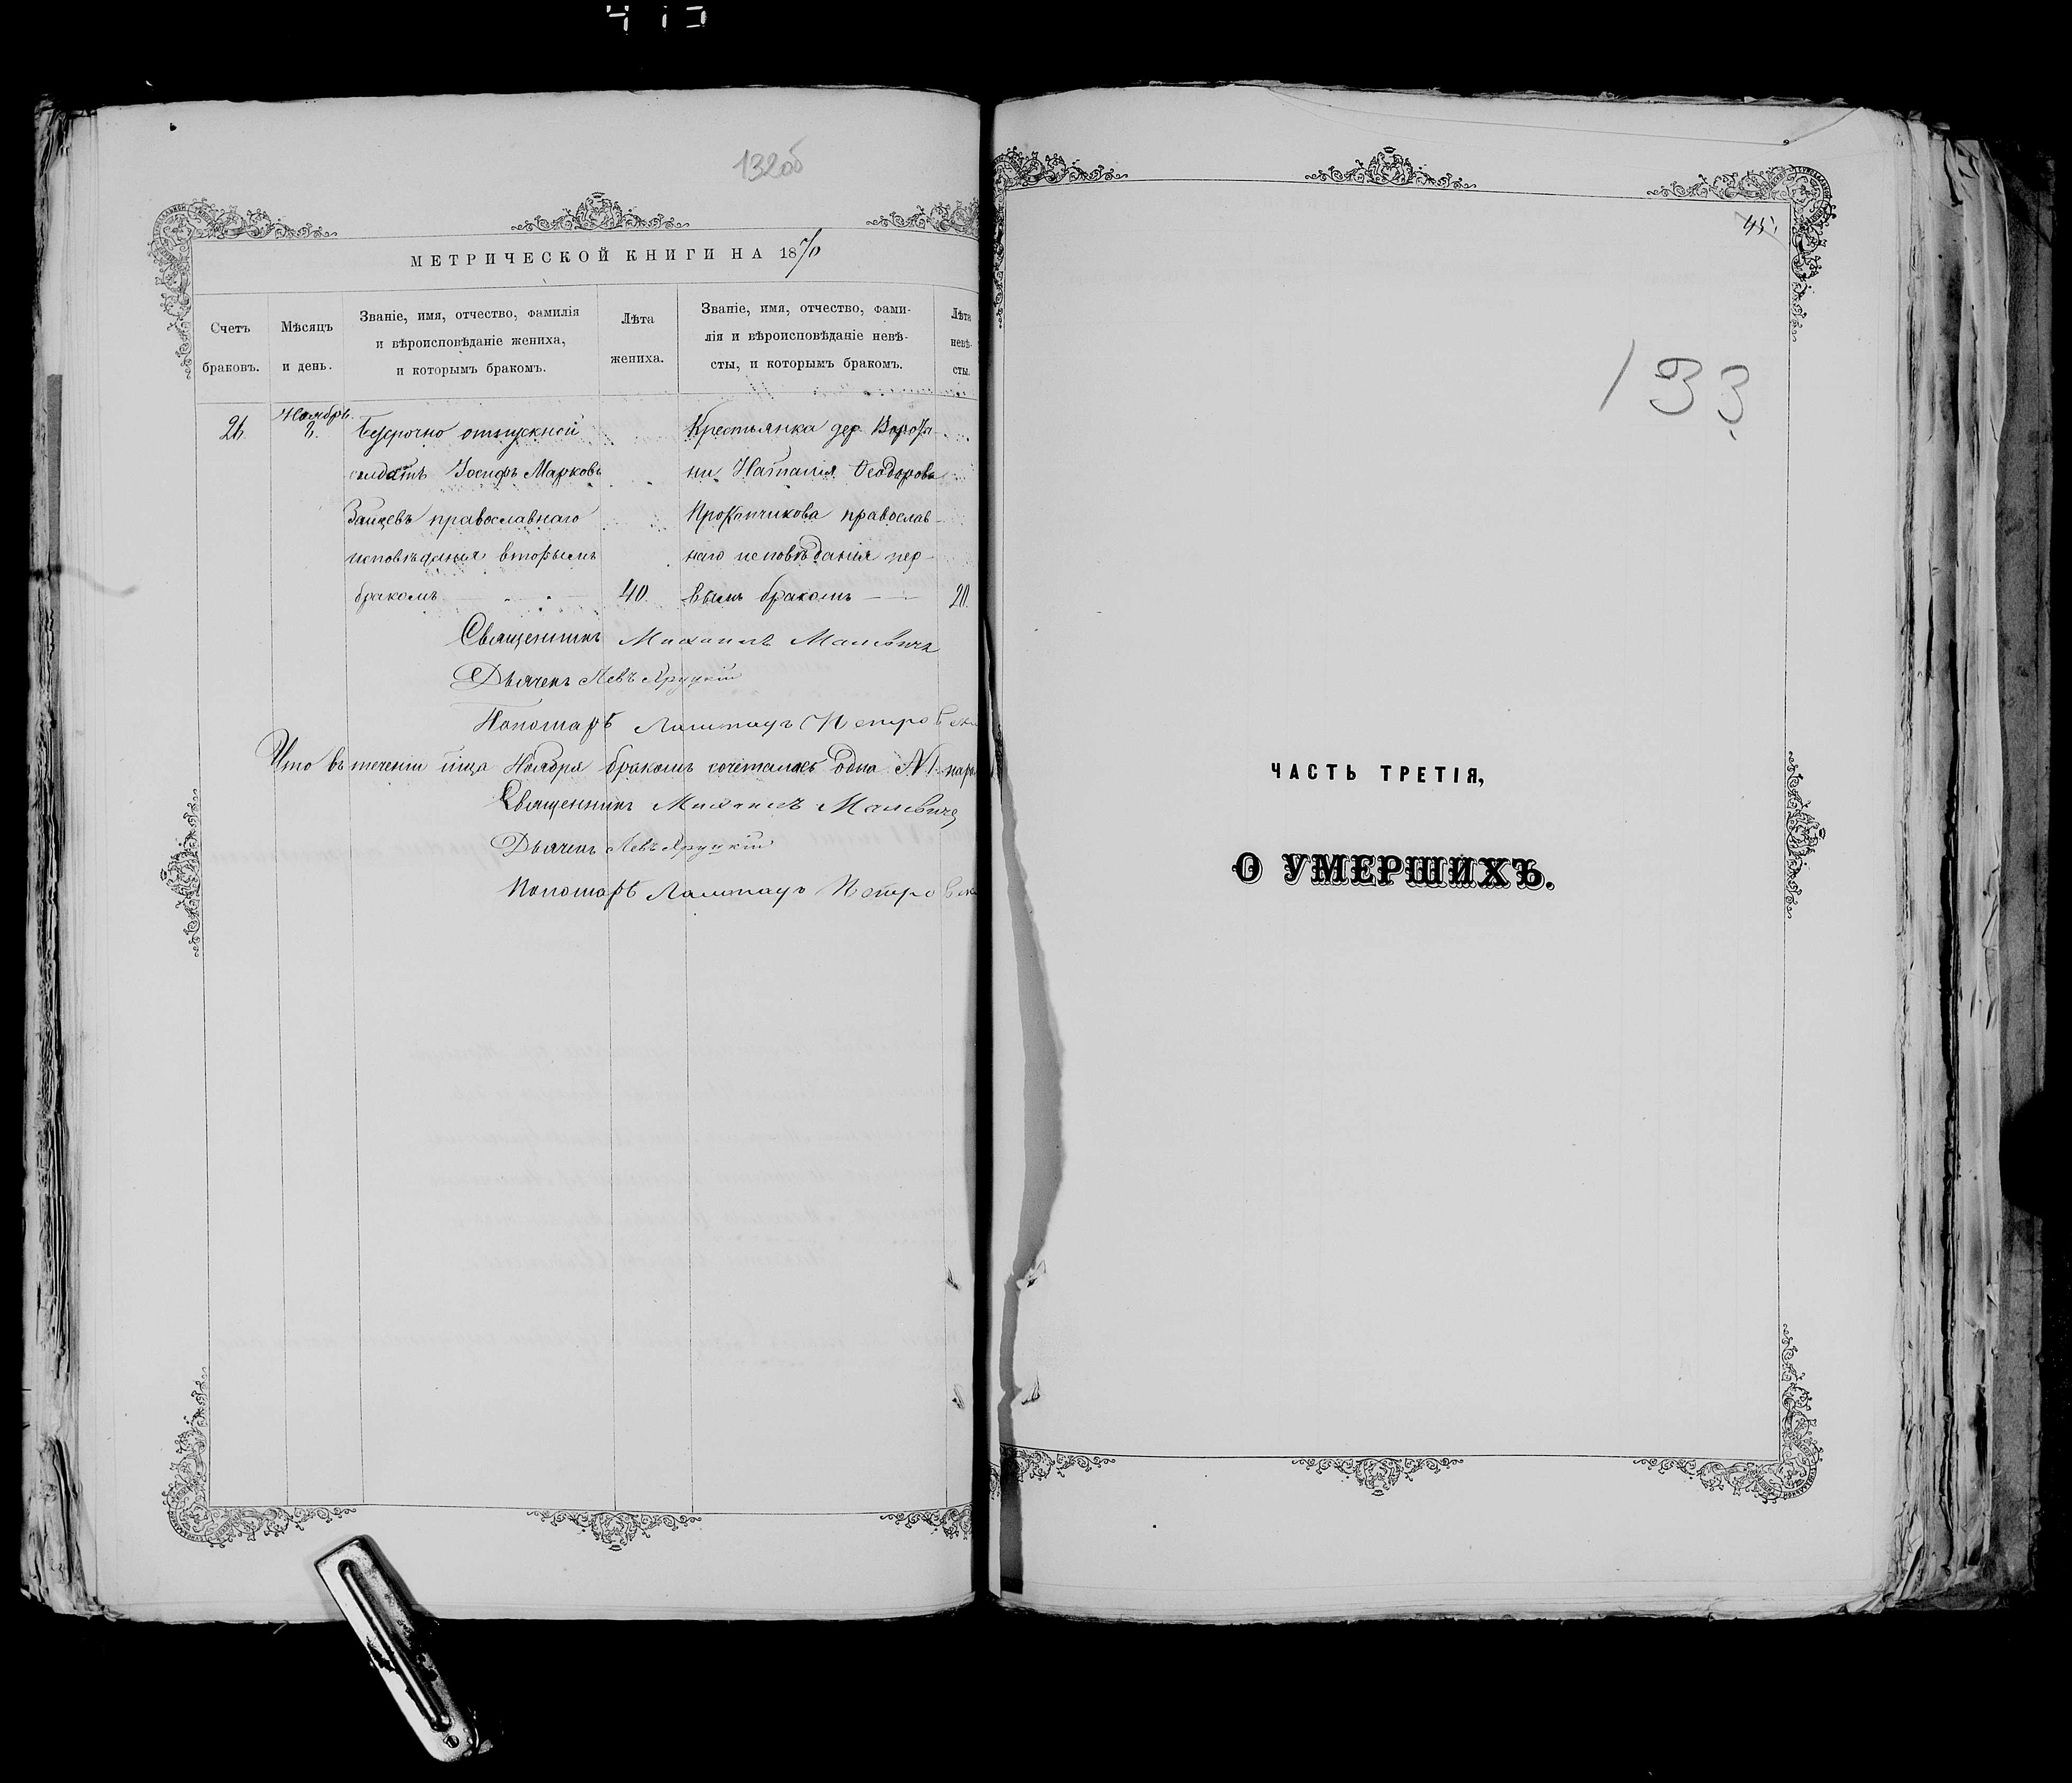 132об
МЕТРИЧЕСКОЙ КНИГИ НА 1870
Счетъ браковъ.
Мѣсяцъ и день.
Званіе, имя, отчество, фамилія
и вѣроисповѣданіе жениха,
и которымъ бракомъ.
Лѣта жениха.
Званіе, имя, отчество, фами-
лія и вѣроисповѣданіе невѣ-
сты, и которымъ бракомъ.
Лѣта невѣ- сты.
26.
Ноябрь
8.
Безсрочно отпускной
солдатъ Іосифъ Марковъ
Зайцевъ православнаго
исповѣданія вторымъ
бракомъ
40.
Крестьянка дер
ни Наталія Ѳеодорова
православ-
наго исповѣданія пер-
вымъ бракомъ
20.
Священникъ Михаилъ Малевичъ
Дьячекъ Левъ Яруцкій
Пономарь
Что въ теченіи мца Ноября бракомъ сочеталась одна №1 пара
Священникъ Михаилъ Малевичъ
Дьячекъ Левъ Яруцкій
Пономарь
45.
133
ЧАСТЬ ТРЕТІЯ,
О УМЕРШИХЪ.